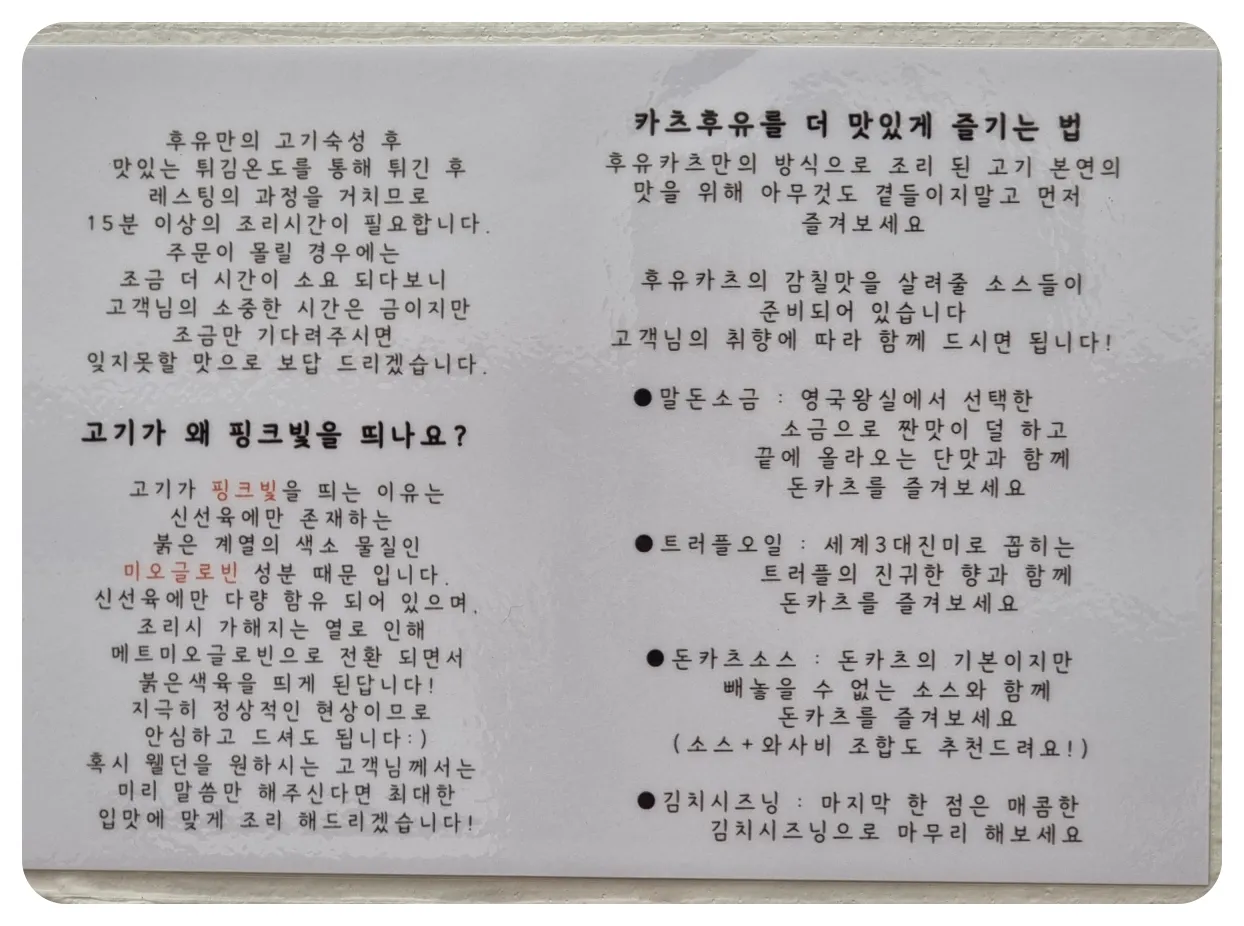 후유만의 고기숙성 후
맛있는 튀김온도를 통해 튀긴 후
레스팅의 과정을 거치므로
15분 이상의 조리시간이 필요합니다.
주문이 몰릴 경우에는
조금 더 시간이 소요 되다보니
고객님의 소중한 시간은 금이지만
조금만 기다려주시면
잊지못할 맛으로 보답 드리겠습니다.
고기가 왜 핑크빛을 띄나요?
고기가 핑크빛을 띄는 이유는
신선육에만 존재하는
붉은 계열의 색소 물질인
미오글로빈 성분 때문 입니다.
신선육에만 다량 함유 되어 있으며,
조리시 가해지는 열로 인해
메트미오글로빈으로 전환 되면서
붉은색육을 띄게 된답니다!
지극히 정상적인 현상이므로
안심하고 드셔도 됩니다:)
혹시 웰던을 원하시는 고객님께서는
미리 말씀만 해주신다면 최대한
입맛에 맞게 조리 해드리겠습니다!
카츠후유를 더 맛있게 즐기는 법
후유카츠만의 방식으로 조리 된 고기 본연의
맛을 위해 아무것도 곁들이지말고 먼저
즐겨보세요
후유카츠의 감칠맛을 살려줄 소스들이
준비되어 있습니다
고객님의 취향에 따라 함께 드시면 됩니다!
●말돈소금 : 영국왕실에서 선택한
소금으로 짠맛이 덜 하고
끝에 올라오는 단맛과 함께
돈카츠를 즐겨보세요
●트러플오일 : 세계3대진미로 꼽히는
트러플의 진귀한 향과 함께
돈카츠를 즐겨보세요
●돈카츠소스 : 돈카츠의 기본이지만
빼놓을 수 없는 소스와 함께
돈카츠를 즐겨보세요
(소스+와사비 조합도 추천드려요!)
●김치시즈닝 : 마지막 한 점은 매콤한
김치시즈닝으로 마무리 해보세요